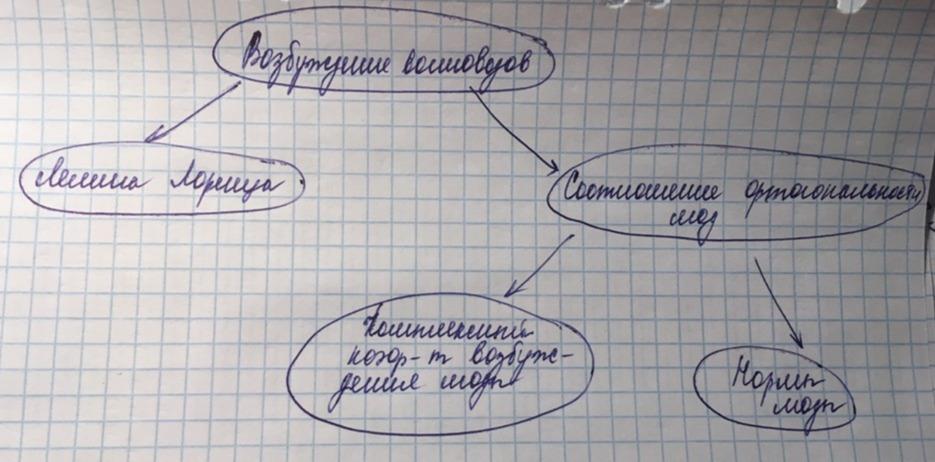 Возбуждение волноводов
Лемма Лоренца
Соотношение ортогональности
мод
Комплексный
коэф-т возбуж-
дения моды
Норма
моды